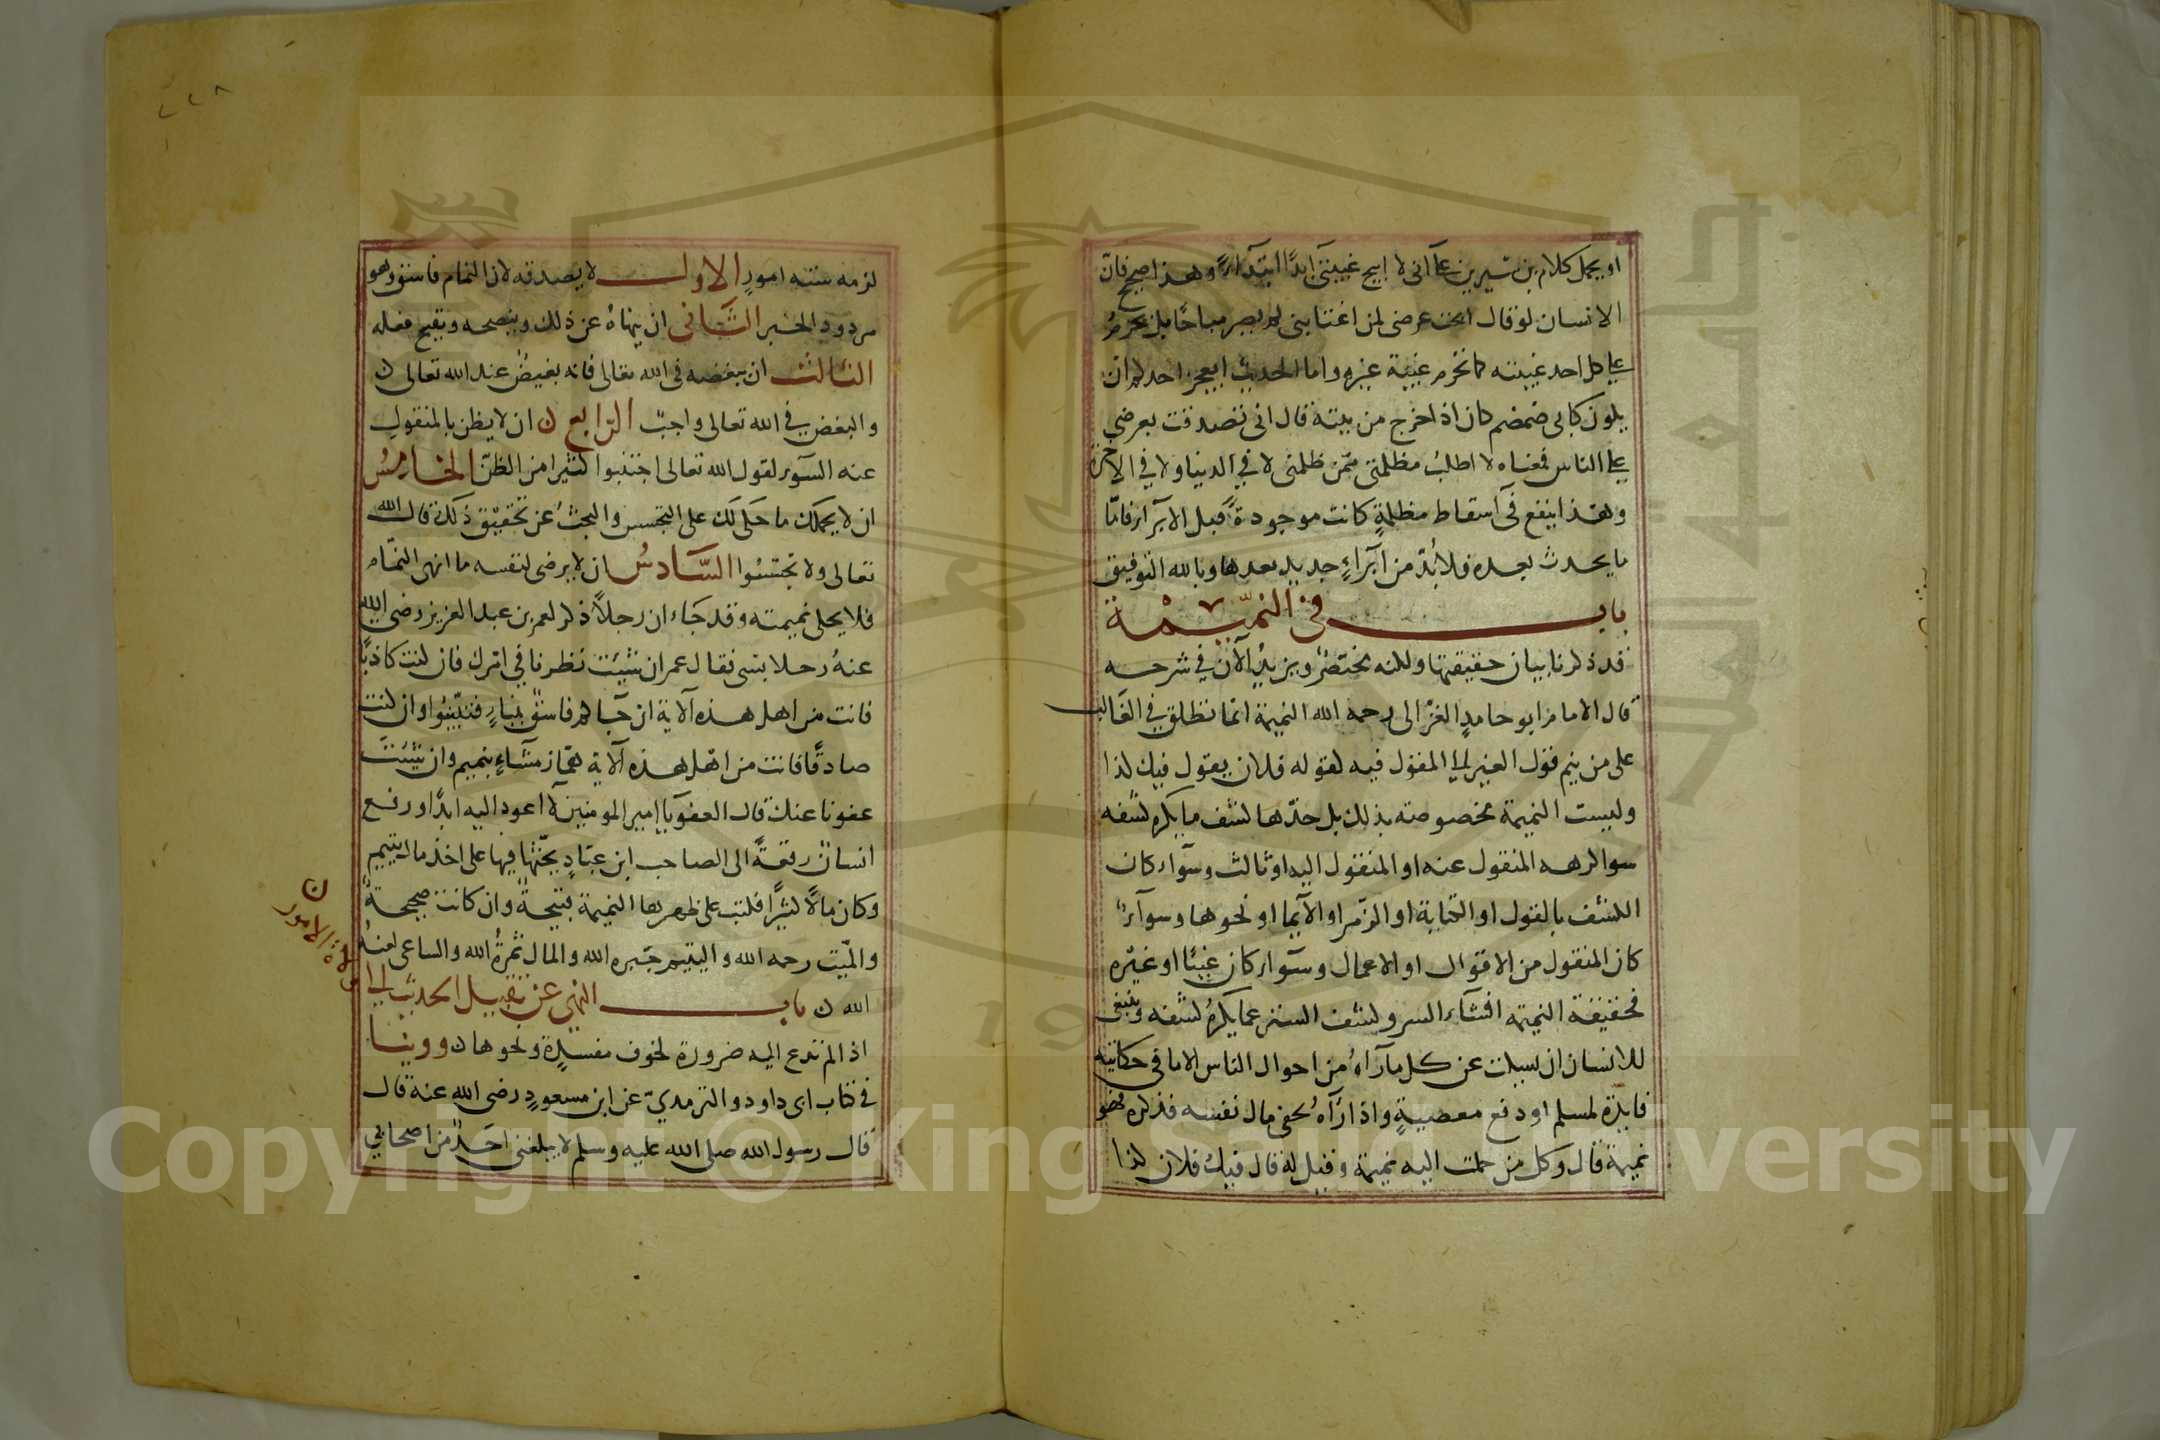 او يحمل كلام بن سيرين على اني لا ابيح غيبتي ابدًا ابتدآءً وهذا صحيح فان
الانسان لو قال ابحت عرضي لمن اغتابني لم يصر مباحًا بل يحرم
على كل احد غيبته كما تحرم غيبة غيره واما الحديث ايعجز احدكم ان
يكون كابي ضمضم كان اذا خرج من بيته قال اني تصدقت بعرضي
على الناس فمعناه لا اطلب مظلمتي ممن ظلمني لا في الدنيا ولا في الاخرة
وهذا ينفع في اسقاط مظلمةٍ كانت موجودة قبل الابرآء فامّا
ما يحدث بعده فلا بُدّ من ابرآءٍ جديد بعدها وبالله التوفيق
باب في النميمة
قد ذكرنا بيان حقيقتها ولكنه مختصرٌ ويزيدُ الآن في شرحه
قال الامام ابو حامدٍ الغزالى رحمه الله النميمة انما تطلق في الغالب
على من ينم قول الغير الى المقول فيه كقوله فلان يقول فيك كذا
وليست النميمة مخصوصة بذلك بل حدّها كشف ما يكره كشفه
سوا كرهه المنقول عنه او المنقول اليه او ثالث وسوآء كان
الكشف بالقول او الكتابة او الرّمز او الآيما او نحوها وسوآء
كان المنقول من الاقوال او الاعمال وسوآء كان عيبًا او غيره
فحقيقة النميمة افشآء السر وكشف الستر عما يكرهُ كشفه وينبغى
للانسان ان يسكت عن كل مارآهُ من احوال الناس الا ما في حكايته
فايدة لمسلم او دفع معصيةٍ واذا رآهُ يخفى مال نفسه فذكره فهو
نميمة قال وكل من حملت اليه نميمة وقيل له قال فيك فلان كذا
٢٢٨
لزمه ستة امورٍ الاول لا يصدقه لان النمام فاسق وهو
مردود الخبر الثاني ان ينهاهُ عن ذلك وينصحه ويقبح فعله
الثالث ان يبغضه في الله تعالى فانه بغيضٌ عند الله تعالى ن
والبغض في الله تعالى واجبٌ الرابع ن ان لا يظن بالمنقول
عنه السوء لقول الله تعالى اجتنبوا كثيرا من الظنّ الخامسُ
ان لا يحملك ما حكى لك على التجسس والبحث عن تحقيق ذلك قال الله
تعالى ولا تجسسوا السّادسُ ان لا يرضى لنفسه ما انهى النمّام
فلا يحكى نميمته وقد جآء ان رجلاً ذكر لعمر بن عبد العزيز رضى الله
عنهُ رجلا بشى فقال عمر ان شيت نظرنا في امرك فان كنت كاذبًا
فانت من اهل هذه آلاية ان جآكم فاسقٌ بنباءٍ فتبيّنوا وان كنت
صادقًا فانت من اهل هذه آلاية همّاز مشّاءٍ بنميم وان شيت
عفونا عنك قال العفو يا امير المومنين لا اعود اليه ابدًا ورفع
انسانٌ رقعةً الى الصاحب ابن عبّادٍ يحثّه فيها على اخذ مال يتيم
وكان مالاً كثيرًا فكتب على ظهرها النميمة قبيحةٌ وان كانت صحيحةً
والميّت رحمه الله واليتيم جَبره الله والمال ثمرهُ الله والساعى لعنهُ
الله ن باب النهي عن نقل الحديث الى
صلاة الامور ن
اذا لم تدع اليه ضرورة لخوف مفسدةٍ ونحوها ن روينا
في كتاب ابى داود والترمديّ عن ابن مسعودٍ رضى الله عنه قال
قال رسول الله صلى الله عليه وسلم لا يبلغنى احَدٌ من اصحابي
Copyright © King Saud University